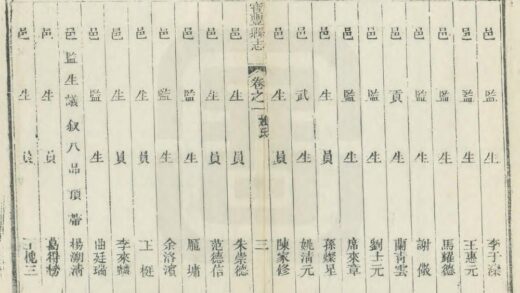 邑監生 李于
邑監生 王惠元
邑監生 馬耀德
邑監生 謝儼
邑貢生 蘭青雲
邑監生 劉士元
邑監生 席來章
邑生員 孫燦星
邑武生 姚清元
邑生員 陳家修
寳豐縣志 卷之一 姓氏 三
邑生員 朱崇德
邑生員 范德信
邑監生 龐墉
邑監生 余洛濱
邑生員 王梃
邑生員 李來麟
邑監生 曲廷瑞
監生議叙八品頂帶 楊湖清
邑生員 葛得榜
邑生員 槐三